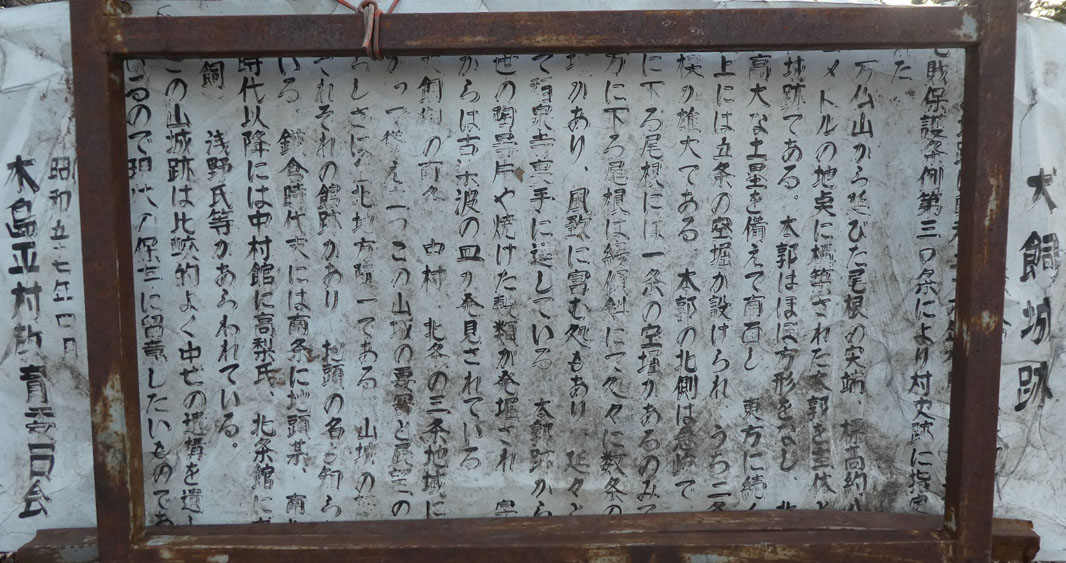 犬飼城跡
財保護条例第三〇条により村史跡に指定
れた
万仏山から延びた尾根の突端 標高約八
メートルの地点に構築された本郭を主体と
城跡である。本郭はほぼ方形をなし 北
高大な土塁を備えて南面し 東方に続く
上には五条の空堀が設けられ うち二条
模が雄大である 本郭の北側は急峻で
に下る尾根には一条の空堀があるのみで
方に下る尾根は緩傾斜にて処々に数条の
があり、風致に富む処もあり 延々と
て 泉寺裏手に達している 本郭跡から
世の陶器片や焼けた 類が発掘され
からは古 波の皿が発見されている
犬飼 の南条 中村 北条の三条地域に
つこの山城の要害と展望の
北地方随一である 山城の
それぞれの館跡があり 地頭の名も知ら
いる。鎌倉時代末には南条に地頭某 南北
時代以降には中村館に高梨氏、北条館に
飼 浅野氏等があらわれている。
この山城跡は比較的よく中世の遺構を遺し
いるので 保存に留意したいものであ
昭和五七年四月
木島平村教育委員会